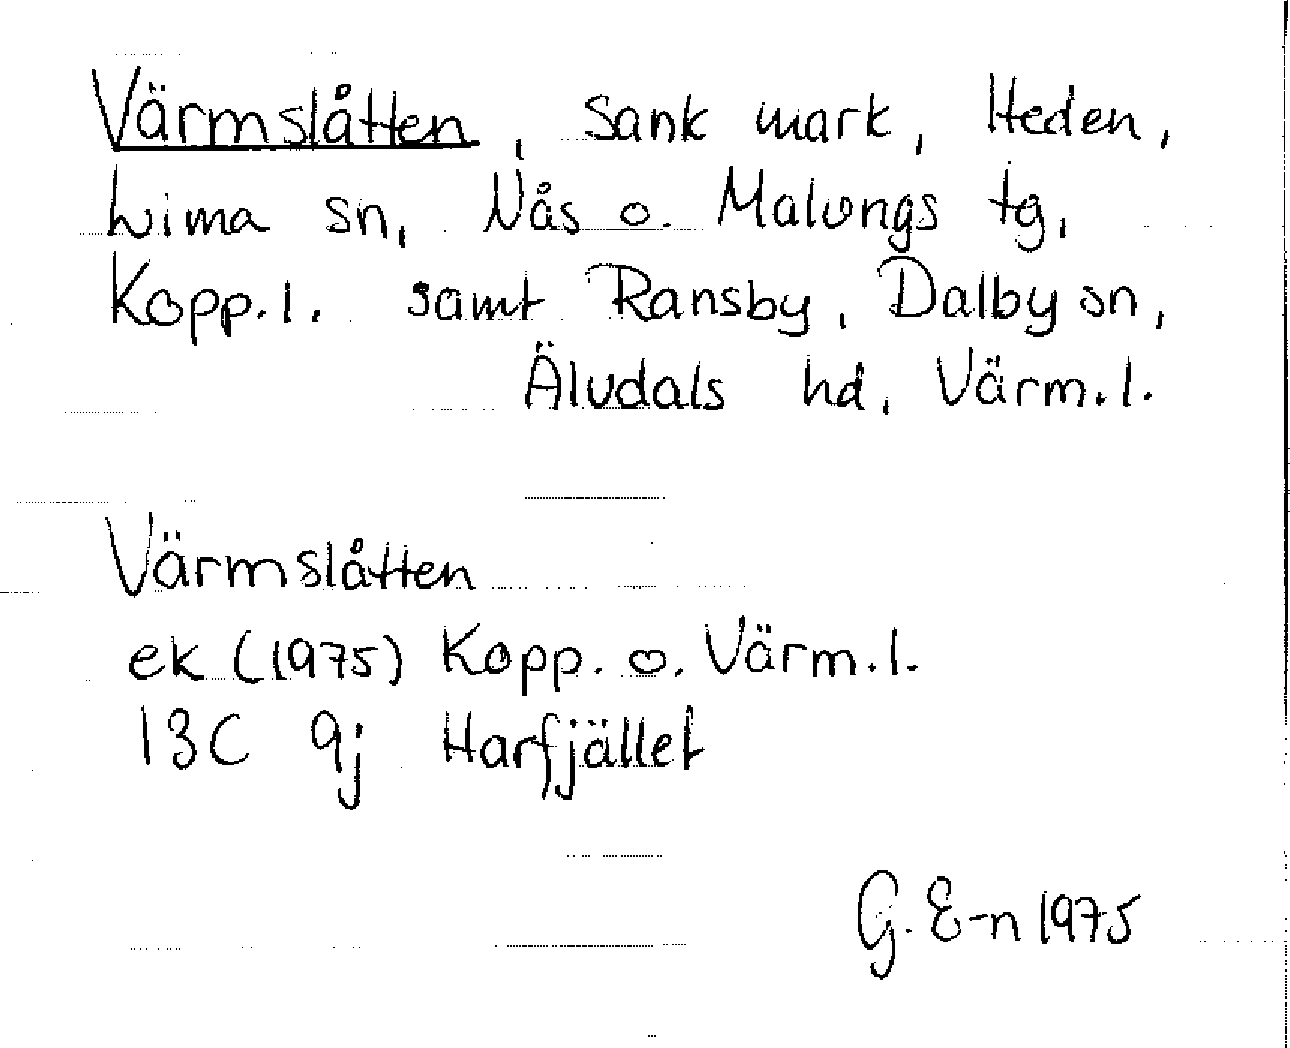 Värmslåtten, Sank mark, Heden,
Lima sn, Nås o. Malungs tg,
Kopp.l. samt Ransby, Dalby sn,
Älvdals hd, Värm.l.
Värmslåtten
ek (1975) Kopp. o. Värm.l.
13C 9j Harfjället
G. E-n 1975